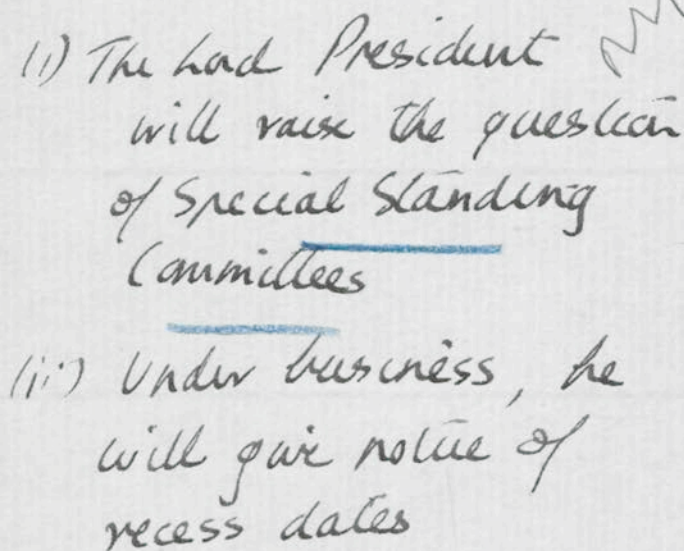 (i) The Lord President
will raise the question
of Special Standing
Committees
(ii) Under business, he
will give notice of
recess dates